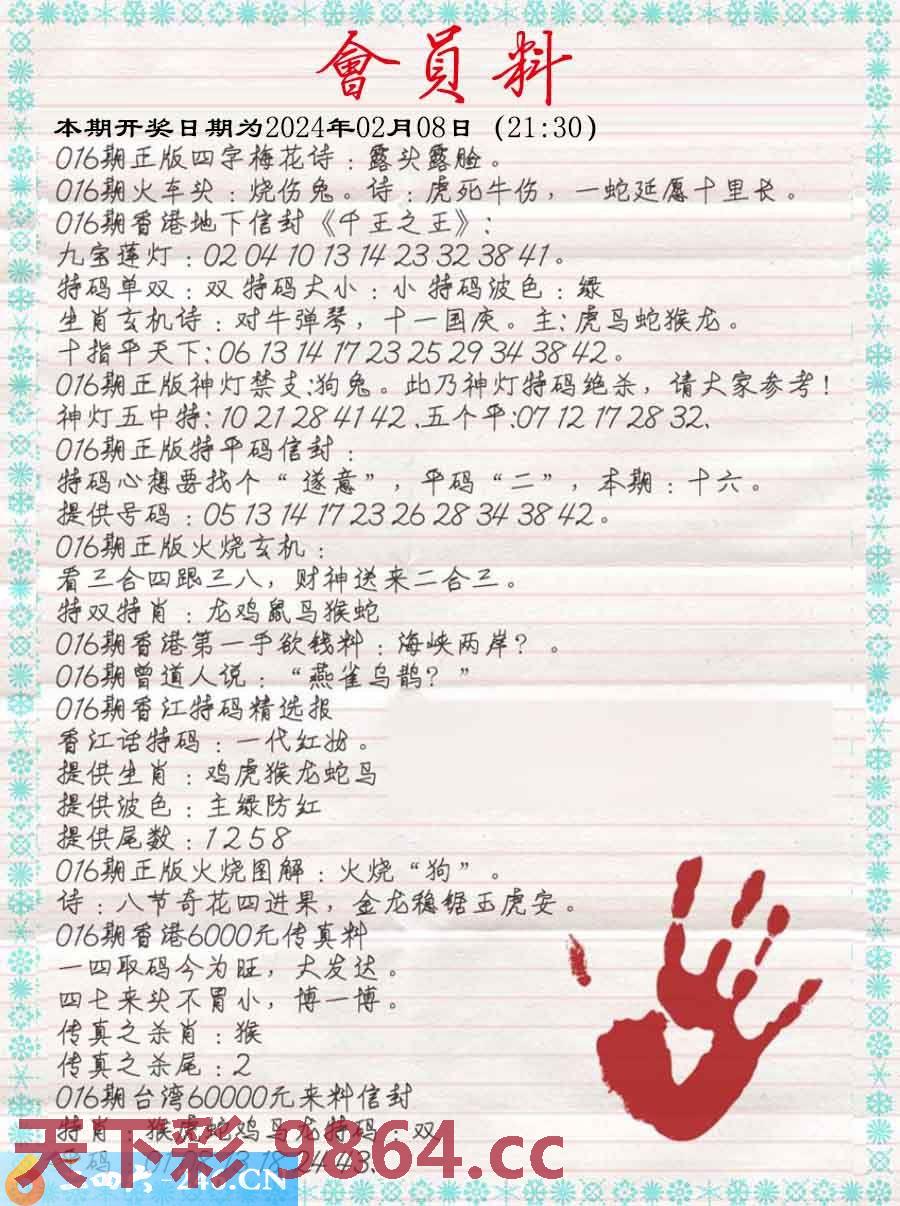 會員料
本期开奖日期为2024年02月08日（21:30）
016期正版四字梅花诗：露头露脸。
016期火车头：烧伤兔。诗：虎死牛伤，一蛇延愿十里长。
016期香港地下信封《千王之王》:
九宝莲灯：02 04 10 13 14 23 32 38 41。
特码单双：双 特码大小：小 特码波色：绿
生肖玄机诗：对牛弹琴，十一国庆。主:虎马蛇猴龙。
十指平天下:06 13 14 17 23 25 29 34 38 42。
016期正版神灯禁支:狗兔。此乃神灯特码绝杀，请大家参考！
神灯五中特: 10 21 28 41 42 .五个平:07 12 17 28 32.
016期正版特平码信封：
特码心想要找个“遂意”，平码“二”，本期：十六。
提供号码：05 13 14 17 23 26 28 34 38 42。
016期正版火烧玄机：
看三合四跟三八，财神送来二合三。
特双特肖：龙鸡鼠马猴蛇
016期香港第一手欲钱料：海峡两岸？。
016期曾道人说：“燕雀乌鹊？”
016期香江特码精选报
香江话特码：一代红妝。
提供生肖：鸡虎猴龙蛇马
提供波色：主绿防红
提供尾数：1 2 5 8
016期正版火烧图解：火烧“狗”。
诗：八节奇花四进果，金龙稳锯玉虎安。
016期香港6000元传真料
一四取码今为旺，大发达。
四七来头不冒小，博一博。
传真之杀肖：猴
传真之杀尾：2
016期台湾60000元来料信封
特肖：猴虎蛇鸡马龙特码：双
18 24 43.
天下彩.9864.cc
-246.CN